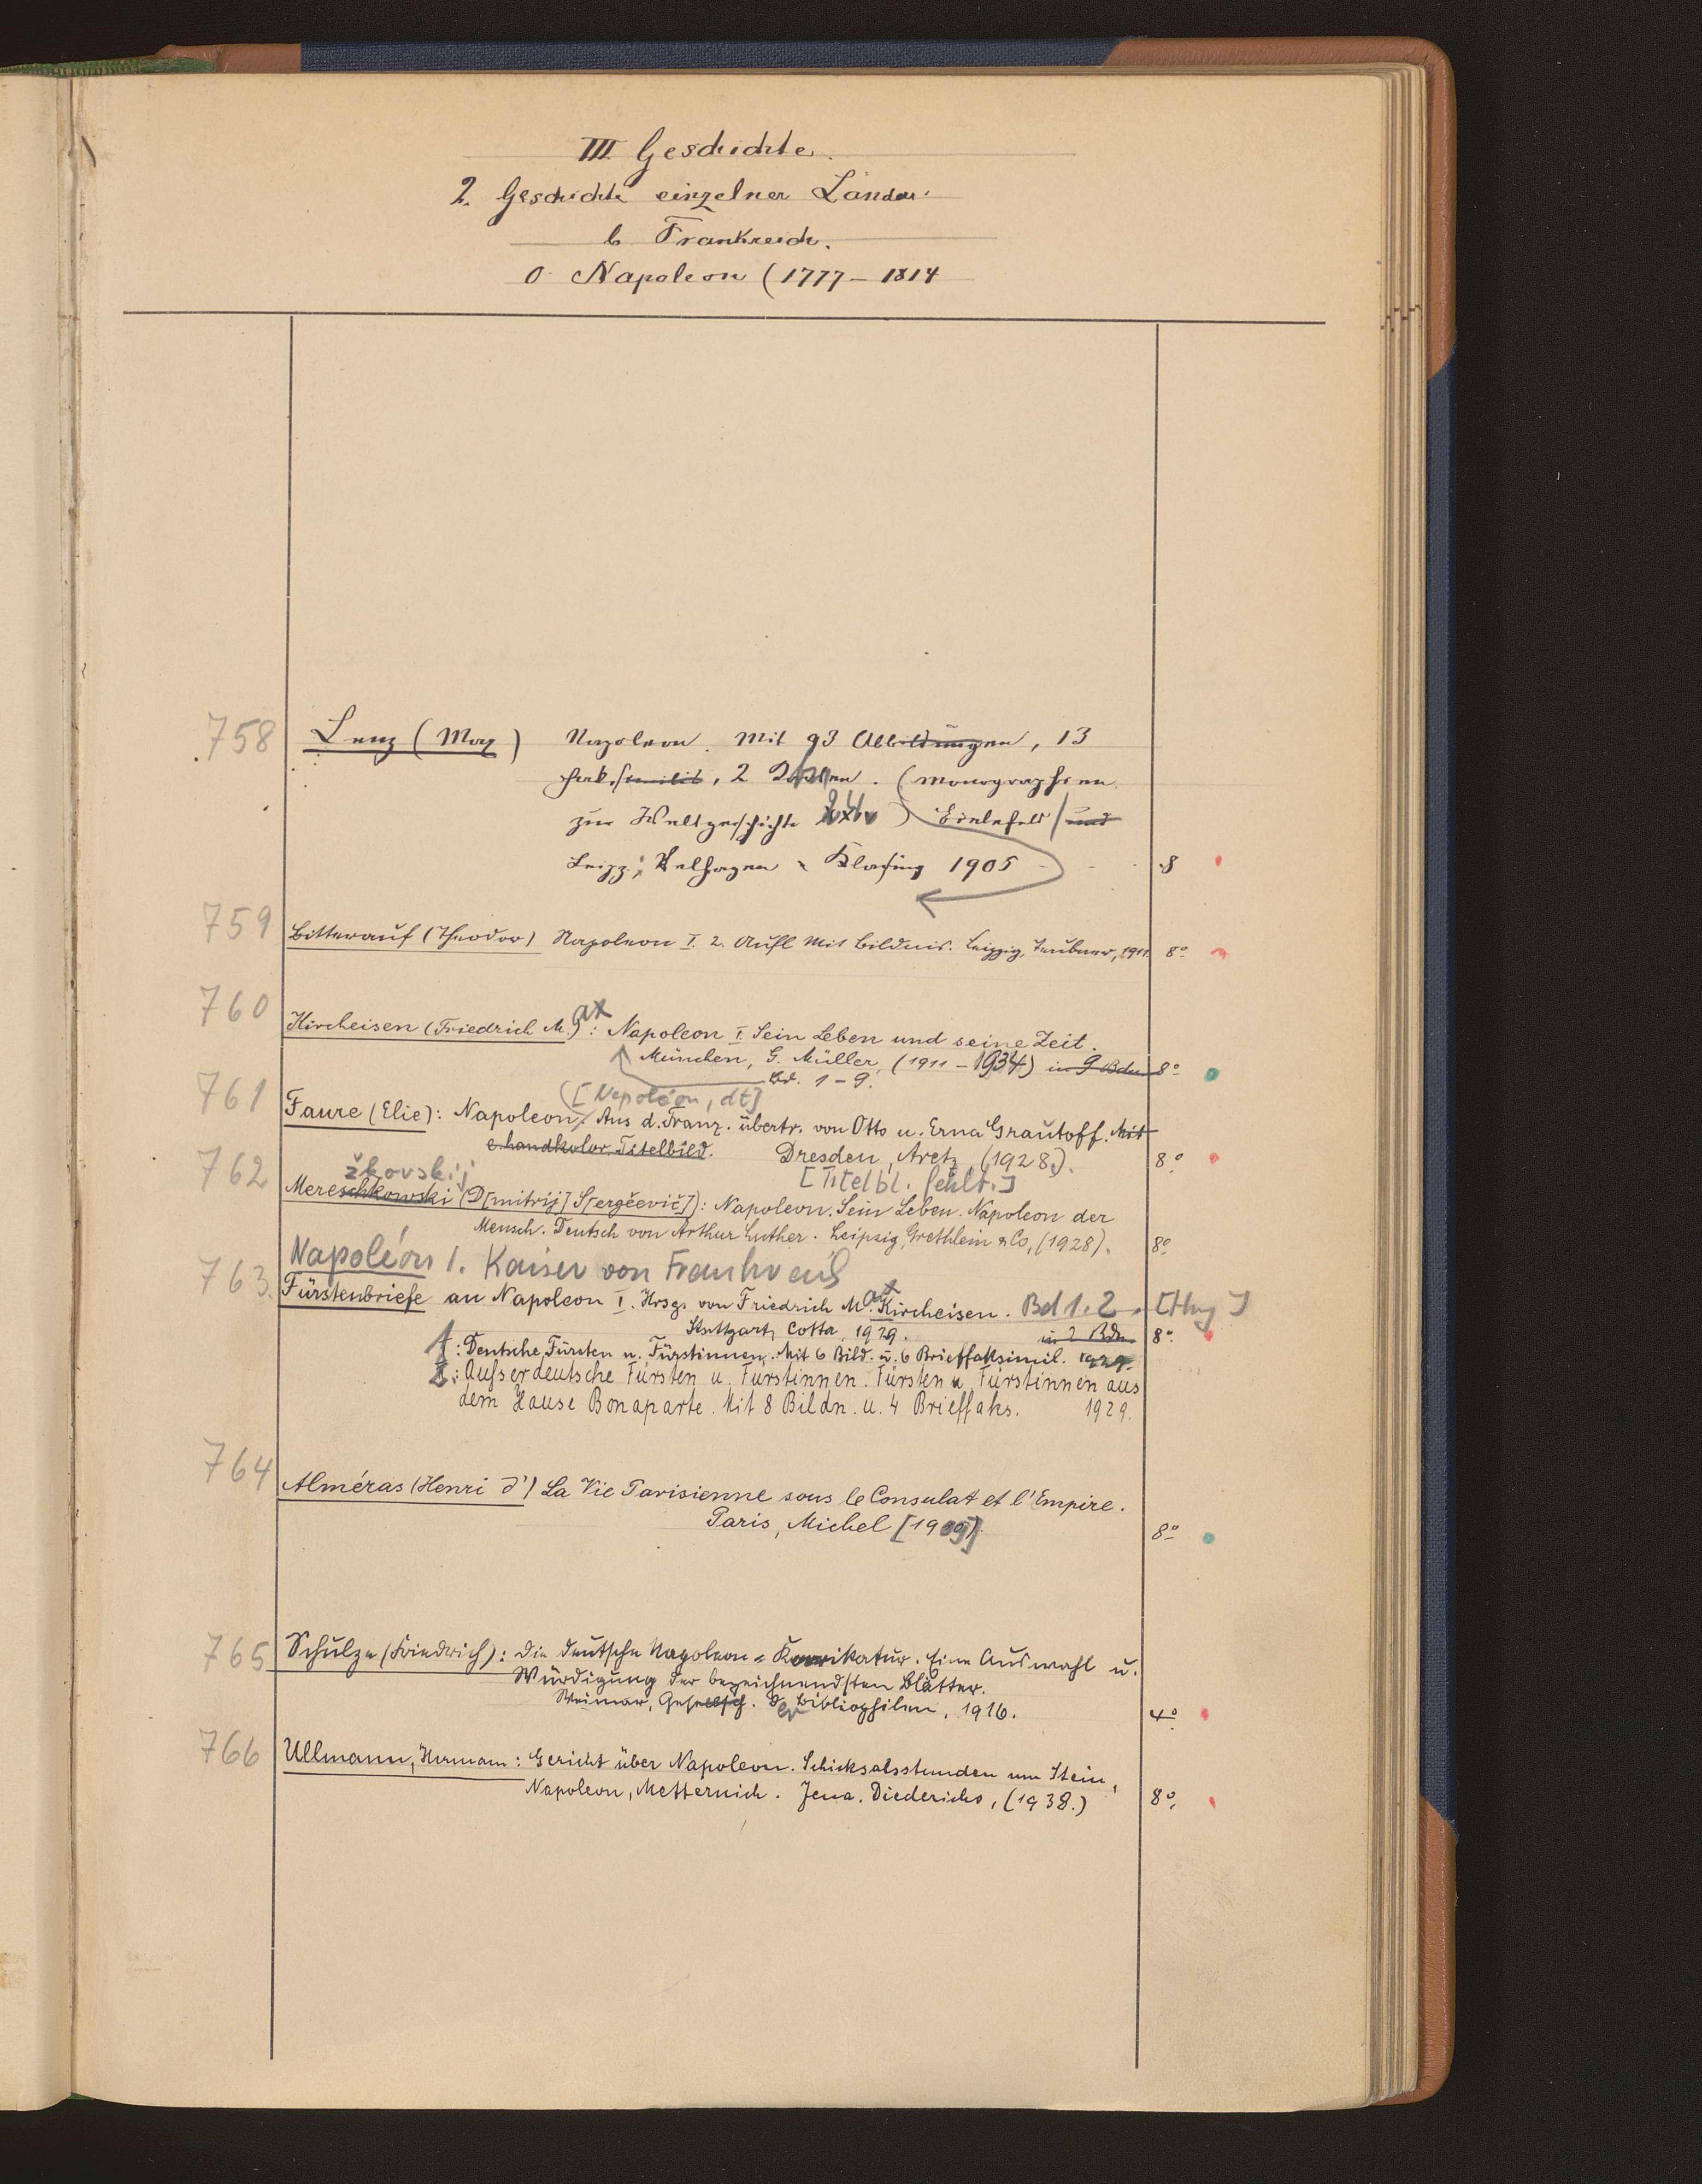 III. Geschichte.
2. Geschichte einzelner Länder.
b Frankreich.
0 Napoleon (1777–1814
758 Lenz (Max) Napoleon. Mit 93 Abbildungen, 13
Faksimilis, 2 Karten. (Monographien
zur Weltgeschichte ) Bielefeld und
Leipz.; Velhagen & Klasing 1905 8
759 Bitterauf (Theodor) Napoleon I. 2. Aufl Mit Bildnis. Leipzig, Teubner, 1911. 8º
760 Kircheisen (Friedrich M.)ax: Napoleon I. Sein Leben und seine Zeit.
München, G. Müller, (1911–1934) in 9 Bdn 8º
Bd. 1–9.
([Napoléon, dt]
761 Faure (Elie): Napoleon, Aus d. Franz. übertr. von Otto u. Erna Grautoff. Mit
e. handkolor. Titelbild. Dresden, Aretz, (1928.). 8º
[Titelbl. fehlt.]
žkovskij
762 Mereschkowski (D[mitrij] S[ergěevič]): Napoleon. Sein Leben. Napoleon der
Mensch. Deutsch von Arthur Luther. Leipzig, Grethlein & Co, (1928). 8º
Napoléon I. Kaiser von Frankreich
763. Fürstenbriefe an Napoleon I. Hrsg. von Friedrich M.ax Kircheisen. Bd 1.2. [Hrsg]
Stuttgart, Cotta, 1929. in 2 Bdn. 8º
1: Deutsche Fürsten u. Fürstinnen. Mit 6 Bild. u. 6 Brieffaksimil. 1929.
2: Außerdeutsche Fürsten u. Fürstinnen. Fürsten u. Fürstinnen aus
dem Hause Bonaparte. Mit 8 Bildn. u. 4 Brieffaks. 1929.
764 Alméras (Henri d') La Vie Parisienne sous le Consulat et l'Empire.
Paris, Michel [1909]. 8º
765 Schulze (Friedrich): Die deutsche Napoleon-Karikatur. Eine Auswahl u.
Würdigung der bezeichnendsten Blätter.
Weimar, Gesellsch. der Bibliophilen, 1916. 4º
766 Ullmann, Hermann: Gericht über Napoleon. Schicksalsstunden um Stein,
Napoleon, Metternich. Jena. Diederichs, (1938.) 8º